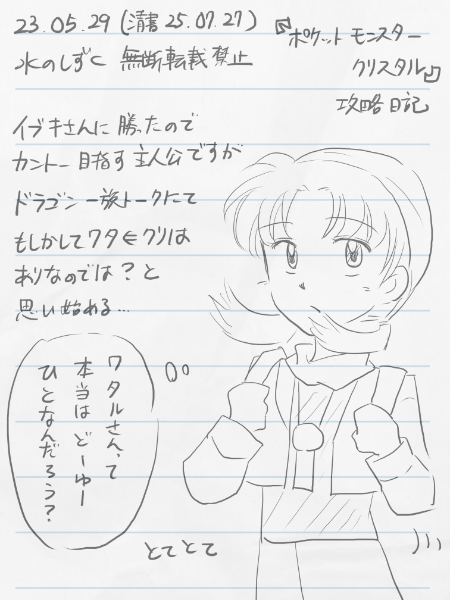 23.05.29(清書25.07.27)
水のしずく 無断転載禁止
『ポケットモンスター
クリスタル』
攻略日記
イブキさんに勝ったので
カントー目指す主人公ですが
ドラゴン一族トークにて
もしかしてワタ∈クリは
ありなのでは?と
思い始める…
ワタルさんって
本当はどーゆー
ひとなんだろう?
とてとて